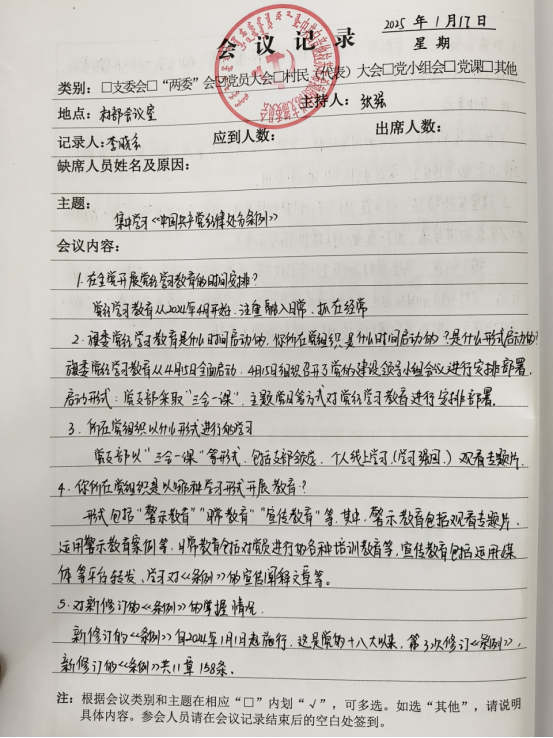 会议记录
2025 年 1 月 17 日
星 期
类别：□支委会□“两委”会☑党员大会□村民（代表）大会□党小组会□党课□其他
地点：村部会议室 主持人：张强
记录人： 应到人数： 出席人数：
缺席人员姓名及原因：
主题：
集中学习《中国共产党纪律处分条例》
会议内容：
1. 在全党开展党纪学习教育的时间安排？
党纪学习教育从2024年4月开始，注重融入日常、抓在经常
2. 旗委党纪学习教育是什么时间启动的，你所在党组织是什么时间启动的？是什么形式启动的？
旗委党纪学习教育从4月15日全面启动，4月15日组织召开了党的建设领导小组会议进行安排部署。
启动形式：党支部采取“三会一课”、主题党日等方式对党纪学习教育进行安排部署。
3. 所在党组织以什么形式进行的学习
党支部以“三会一课”等形式，包括支部领学、个人线上学习（学习强国）、观看专题片。
4. 你所在党组织是以哪种学习形式开展教育？
形式包括“警示教育”“日常教育”“宣传教育”等，其中，警示教育包括观看专题片、
运用警示教育案例等，日常教育包括对党员进行的各种培训教育等，宣传教育包括运用媒
体等平台转发、学习对《条例》的宣传阐释文章等。
5. 对新修订的《条例》的掌握情况
新修订的《条例》自2024年1月1日起施行，这是党的十八大以来，第3次修订《条例》，
新修订的《条例》共11章158条。
注：根据会议类别和主题在相应“□”内划“√”，可多选。如选“其他”，请说明
具体内容。参会人员请在会议记录结束后的空白处签到。